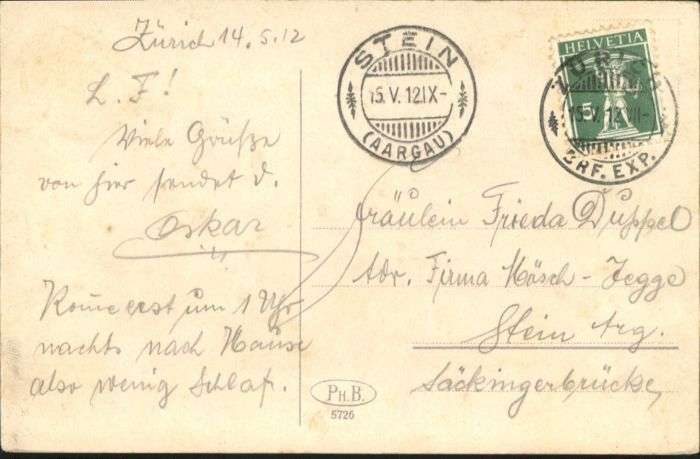 Zürich 14.5.12
L. F!
Viele Grüße
von hier sendet d.
Oskar
Kome erst um 1 Uhr
nachts nach Hause
also wenig Schlaf.
STEIN
15.V.12.IX-
(AARGAU)
HELVETIA
5
BRF. EXP.
Fräulein Frieda Düppel
Adr. Firma Mösch-Jegge
Stein Arg.
Säckingerbrücke
PH.B.
5726